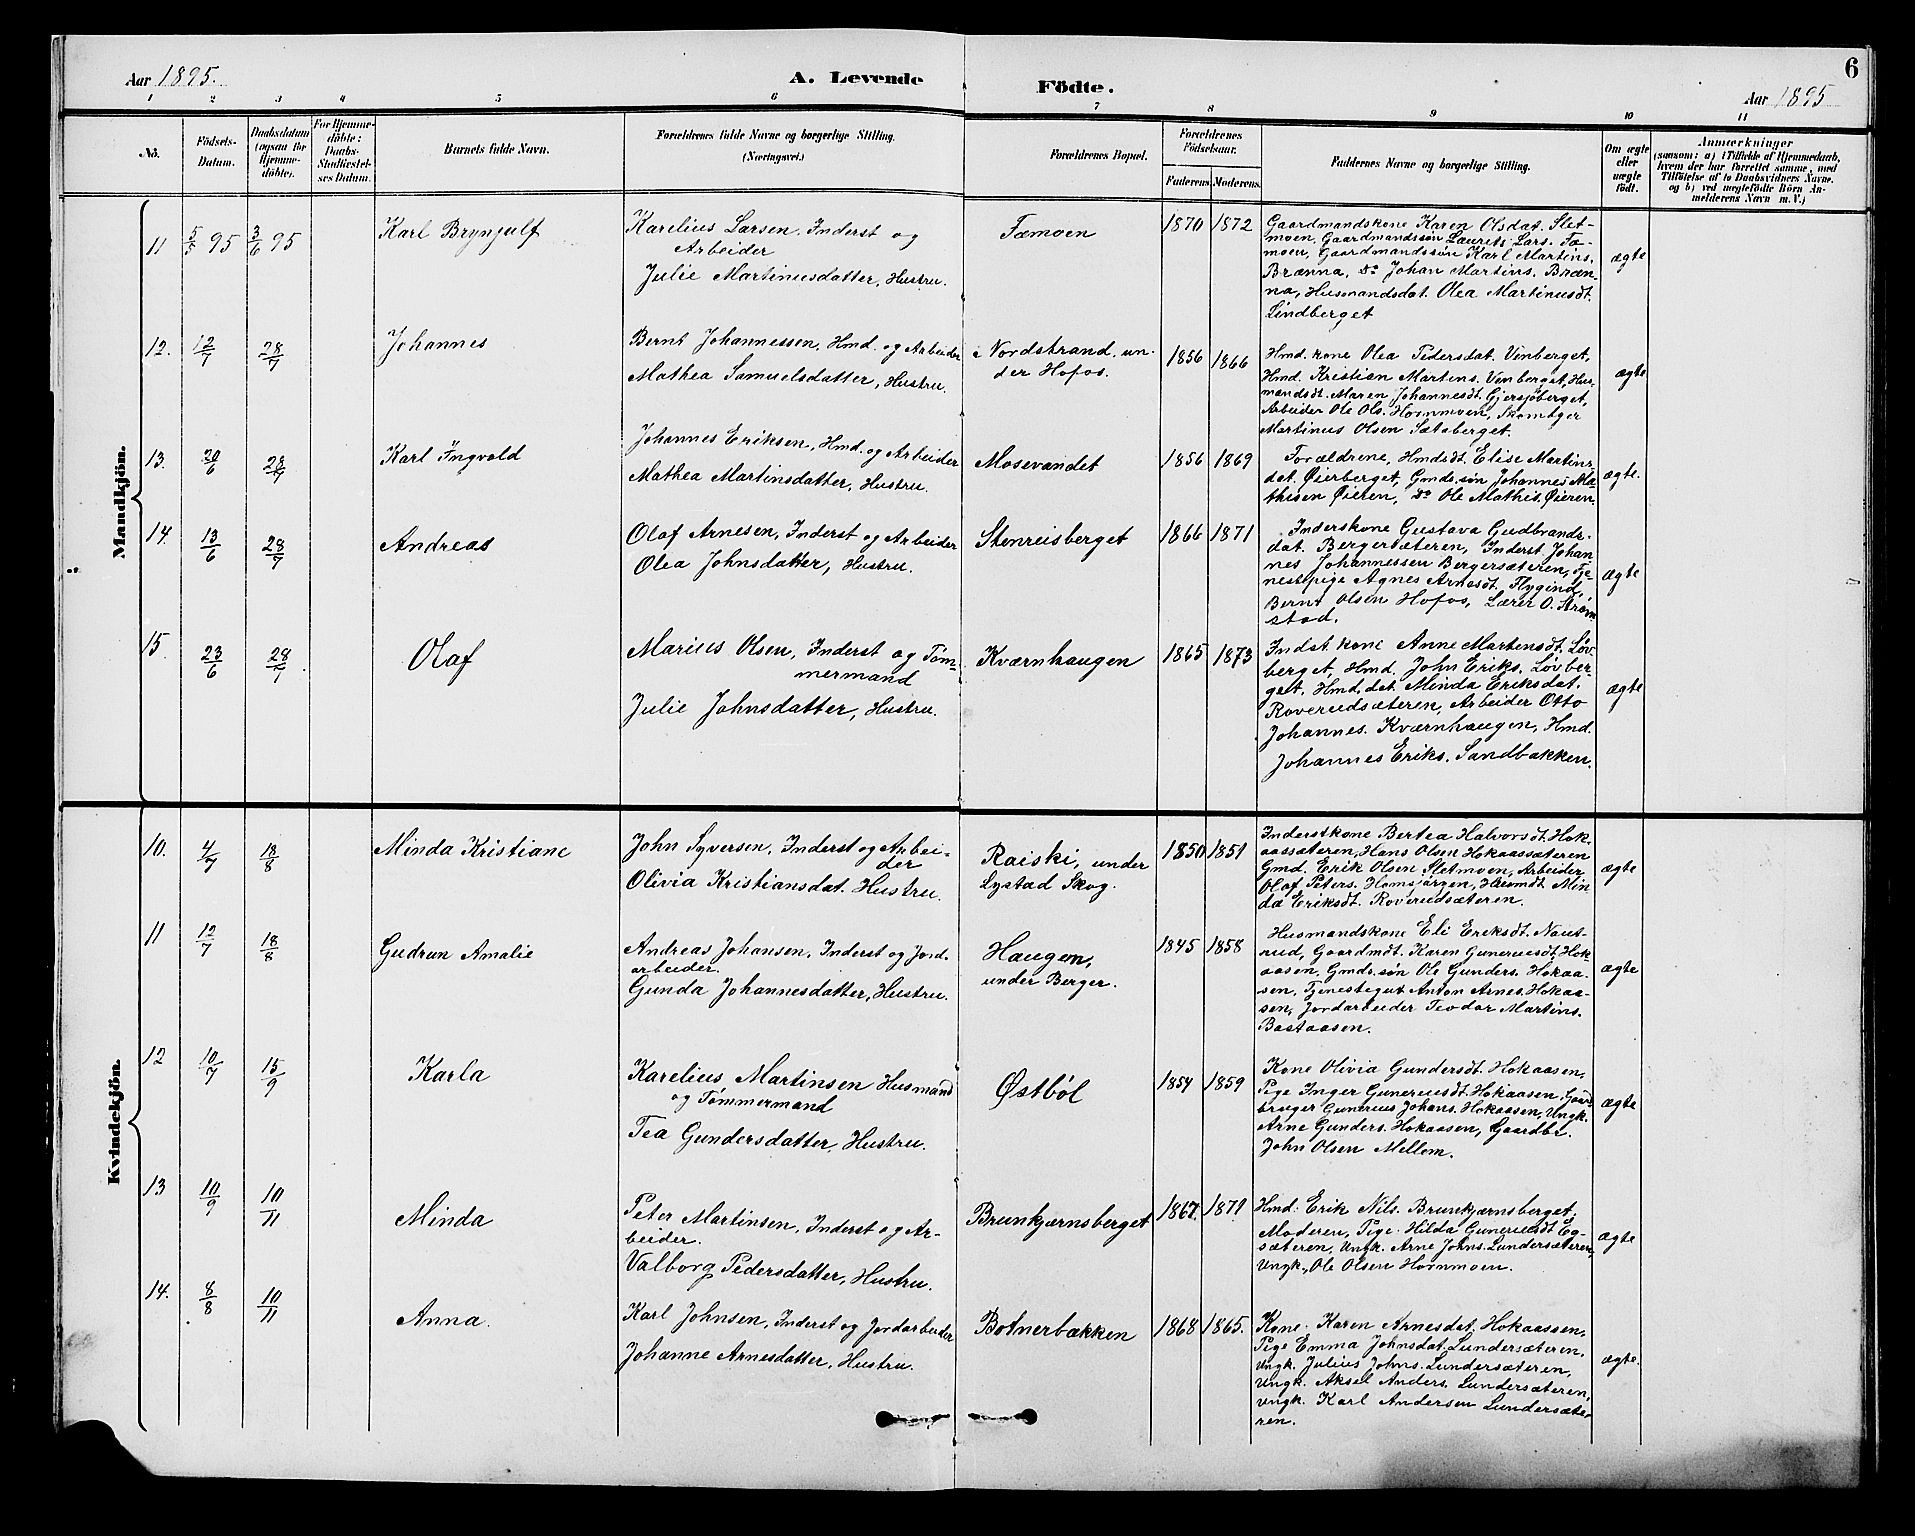 6
Aar 1895.
A. Levende
Födte.
Aar 1895
1 2 3 4 5 6 7 8 9 10 11
No.
Födsels-
Datum.
Daabsdatum
(ogsaa for
Hjemme-
döbte).
For Hjemme-
döbte:
Daabs-
Stadfæstel-
ses Datum.
Barnets fulde Navn.
Forældrenes fulde Navne og borgerlige Stilling.
(Næringsvei.)
Forældrenes Bopæl.
Forældrenes
Födselsaar.
Faderens. Moderens.
Faddernes Navne og borgerlige Stilling.
Om ægte
eller
uægte
født.
Anmærkninger
(saasom: a) i Tilfælde af Hjemmedaab,
hvem der har forrettet samme, med
Tilföielse af to Daabsvidners Navne.
og b) ved uægtefödte Börn An-
melderens Navn m. V.)
Mandkjön.
11
5/5 95
3/6 95
Karl Brynjulf
Karelius Larsen, Inderst og
Arbeider
Julie Martinusdatter, Hustru.
Tæmoen
1870 1872
Gaardmandskone Karen Olsdat. Slet-
moen, Gaardmandssøn Laurits Lars. Tæ-
moen, Gaardmandssøn Karl Martins.
Brænna, Do Johan Martins. Bræn-
na, Husmandsdat. Olea Martinusdt.
Lindberget
ægte
12.
12/7
28/7
Johannes
Bernt Johannessen, Hmd. og Arbeider
Mathea Samuelsdatter, Hustru.
Nordstrand, un-
der Hofos.
1856 1866
Hmd. kone Olea Pedersdat. Vinberget,
Hmd. Kristian Martins. Venberget, Hus-
mandsdt. Maren Johannesdt. Gjersjöberget,
Arbeider Ole Ols. Hornmoen, Skomager
Martinus Olsen Sætaberget.
ægte
13.
20/6
28/7
Karl Ingvold
Johannes Eriksen, Hmd. og Arbeider
Mathea Martinsdatter, Hustru.
Mosevandet
1856 1869
Forældrene, Hmdsdt. Elise Martins-
dat. Øierberget, Gmds.søn Johannes Ma-
thisen Øieren, Do Ole Mathis. Øieren
ægte.
14.
13/6
28/7
Andreas
Olaf Arnesen, Inderst og Arbeider
Olea Johnsdatter, Hustru.
Stenreisberget
1866 1871
Inderskone Gustava Gudbrands-
dat. Bergersæteren, Inderst Johan-
nes Johannessen Bergersæteren, Tje-
nestepige Agnes Arnesdt. Flygind,
Bernt Olsen Hofos, Lærer O. Strøm-
stad.
ægte
15.
23/6
28/7
Olaf
Marius Olsen, Inderst og Tøm-
mermand
Julie Johnsdatter, Hustru.
Kværnhaugen
1865 1873
Indst. kone Anne Martensdt. Løv-
berget, Hmd. John Eriks. Løvber-
get, Hmd. dat. Minda Eriksdat.
Roverudsæteren, Arbeider Otto
Johannes. Kværnhaugen, Hmd.
Johannes Eriks. Sandbakken.
ægte
Kvindekjön.
10.
4/7
18/8
Minda Kristiane
John Syversen, Inderst og Arbei-
der
Olivia Kristiansdat. Hustru.
Raiski, under
Lystad Skog.
1850 1851
Inderstkone Bertea Halvorsdt. Hok-
aassæteren, Hans Olsen Hokaassæteren
Gmd. Erik Olsen Sletmoen, Arbeider
Olaf Peters. Homsjørgen, Husmdt Min-
da Eriksdt. Roverudsæteren.
ægte
11
12/7
18/8
Gudrun Amalie
Andreas Johansen, Inderst og Jord-
arbeider.
Gunda Johannesdatter, Hustru.
Haugen,
under Berger.
1845 1858
Husmandskone Eli Eriksdt. Naust-
rud, Gaardmdt. Karen Guneriusdt. Hok-
aasen, Gmds. søn Ole Gunders. Hokaa-
sen, Tjenestegut Anton Arnes. Hokaa-
sen, Jordarbeider Teodor Martins.
Bastaasen.
ægte
12
10/7
15/9
Karla
Karelius Martinsen Husmand
og Tømmermand
Tea Gundersdatter, Hustru.
Østböl
1854 1859
Kone Olivia Gundersdt. Hokaasen,
Pige Inger Guneriusdt. Hokaasen, Gaard-
bruger Gunerius Johans. Hokaasen, Ungk.
Arne Gunders. Hokaasen, Gaardbr.
John Olsen Mellem.
ægte
13
10/9
10/11
Minda
Peter Martinsen, Inderst og Ar-
beider.
Valborg Pedersdatter, Hustru.
Brunkjærnsberget
1867. 1871
Hmd. Erik Nils. Brunkjærnsberget,
Moderen, Pige Hilda Guneriusdt Eg-
sæteren, Ungk. Arne Johns. Lundersæteren,
Ungk. Ole Olsen Hornmoen.
ægte
14.
8/8
10/11
Anna.
Karl Johnsen, Inderst og Jordarbeider
Johanne Arnesdatter, Hustru.
Botnerbækken
1868 1865.
Kone Karen Arnesdat. Hokaassen,
Pige Emma Johnsdat. Lundersæteren,
Ungk. Julius Johns. Lundersæteren,
Ungk. Aksel Anders. Lundersæteren,
Ungk. Karl Andersen Lundersæte-
ren.
ægte.